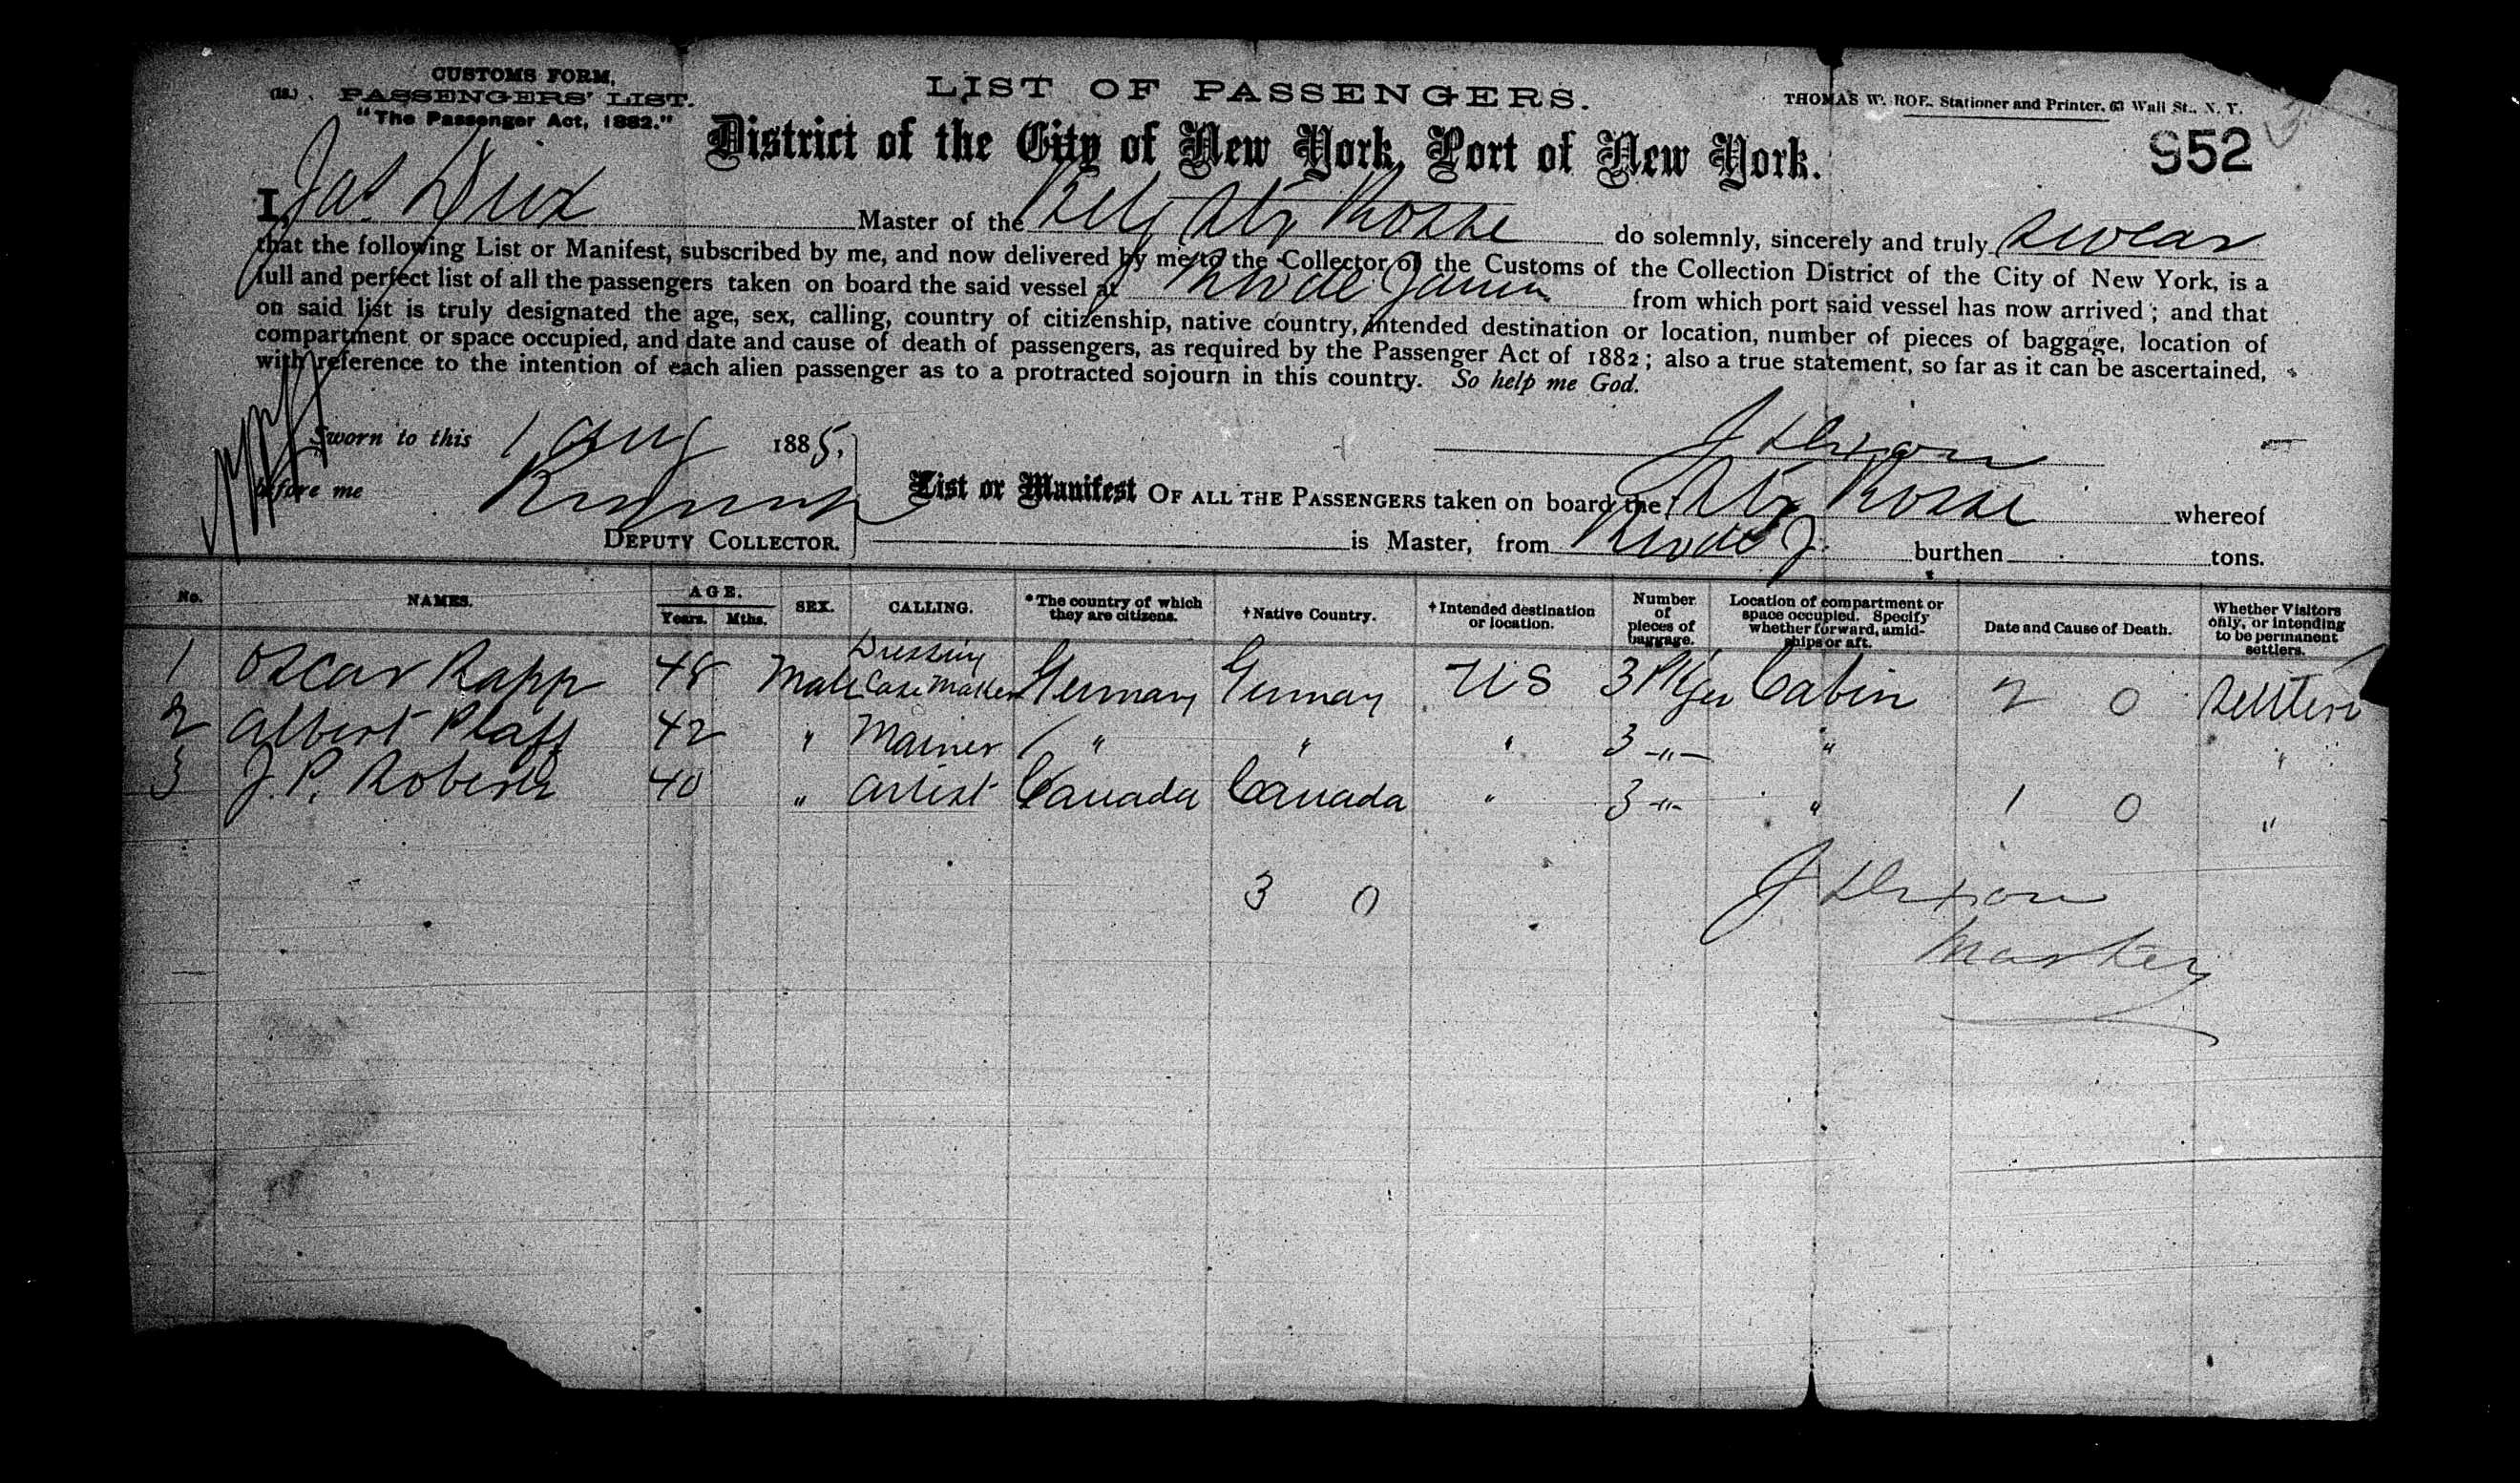 CUSTOMS FORM,
(18.) PASSENGERS' LIST.
"The Passenger Act, 1882."
LIST OF PASSENGERS.
THOMAS W. ROE, Stationer and Printer, 63 Wall St., N. Y.
District of the City of New York, Port of New York.
952
I, Jas Master of the Belg Str Rosse do solemnly, sincerely and truly swear
that the following List or Manifest, subscribed by me, and now delivered by me to the Collector of the Customs of the Collection District of the City of New York, is a
full and perfect list of all the passengers taken on board the said vessel at Rio de Janeiro from which port said vessel has now arrived; and that
on said list is truly designated the age, sex, calling, country of citizenship, native country, intended destination or location, number of pieces of baggage, location of
compartment or space occupied, and date and cause of death of passengers, as required by the Passenger Act of 1882; also a true statement, so far as it can be ascertained,
with reference to the intention of each alien passenger as to a protracted sojourn in this country. So help me God.
Sworn to this 1 Aug 1885,
J Dixon
before me
List or Manifest OF ALL THE PASSENGERS taken on board the Str Rosse whereof
DEPUTY COLLECTOR.
is Master, from Rio de J. burthen tons.
No. NAMES. AGE. Years. Mths. SEX. CALLING. *The country of which they are citizens. †Native Country. †Intended destination or location. Number of pieces of baggage. Location of compartment or space occupied. Specify whether forward, amidships or aft. Date and Cause of Death. Whether Visitors only, or intending to be permanent settlers.
1 Oscar Rapp 48 Male Dressing Case Maker Germany Germany U S 3 Pkges Cabin 2 0 Settlers
2 Albert Pfaff 42 " Mainer " " " 3 -"- " "
3 J. P. Roberts 40 " Artist Canada Canada " 3 -"- " 1 0 "
3 0
J Dixon
Master